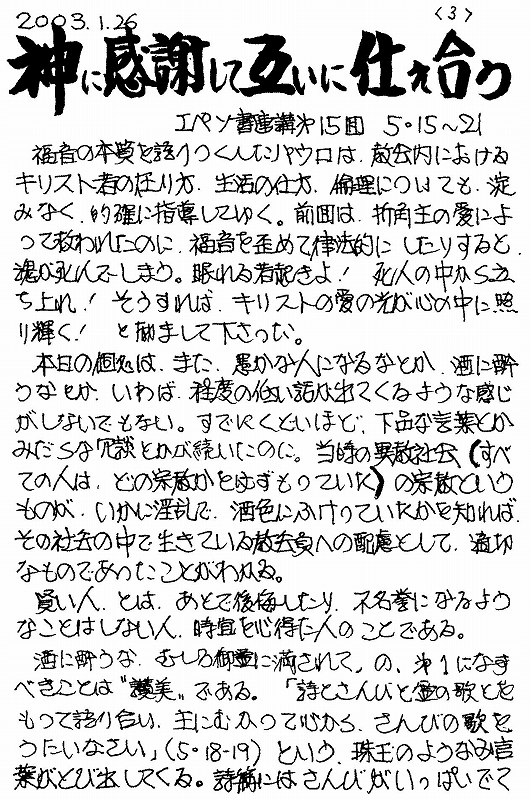 2003.1.26 〈3〉
神に感謝して互いに仕え合う
エペソ書連講第15回 5・15〜21
福音の本質を語りつくしたパウロは、教会内における
キリスト者の在り方、生活の仕方、倫理についても、淀
みなく、的確に指導してゆく。前回は、折角主の愛によ
って救われたのに、福音を歪めて律法的にしたりすると、
魂が死んでしまう。眠れる者起きよ! 死人の中から立
ち上れ! そうすれば、キリストの愛の光が心の中に照
り輝く! と励まして下さった。
本日の個処は、また、愚かな人になるなとか、酒に酔
うなとか、いわば、程度の低い話が出てくるような感じ
がしないでもない。すでにくどいほど、下品な言葉とか
みだらな冗談とかが続いたのに。当時の異教社会(すべ
ての人は、どの宗教かを必ずもっていた)の宗教という
ものが、いかに淫乱で、酒色にふけっていたかを知れば、
その社会の中で生きている教会員への配慮として、適切
なものであったことがわかる。
賢い人、とは、あとで後悔したり、不名誉になるよう
なことはしない人、時宜を心得た人のことである。
酒に酔うな、むしろ御霊に満されて、の、第1になす
べきことは“讃美”である。「詩とさんびと霊の歌とを
もって語り合い、主にむかって心から、さんびの歌を
うたいなさい」(5・18-19)という、珠玉のようなみ言
葉がとび出してくる。詩篇にはさんびがいっぱいでて